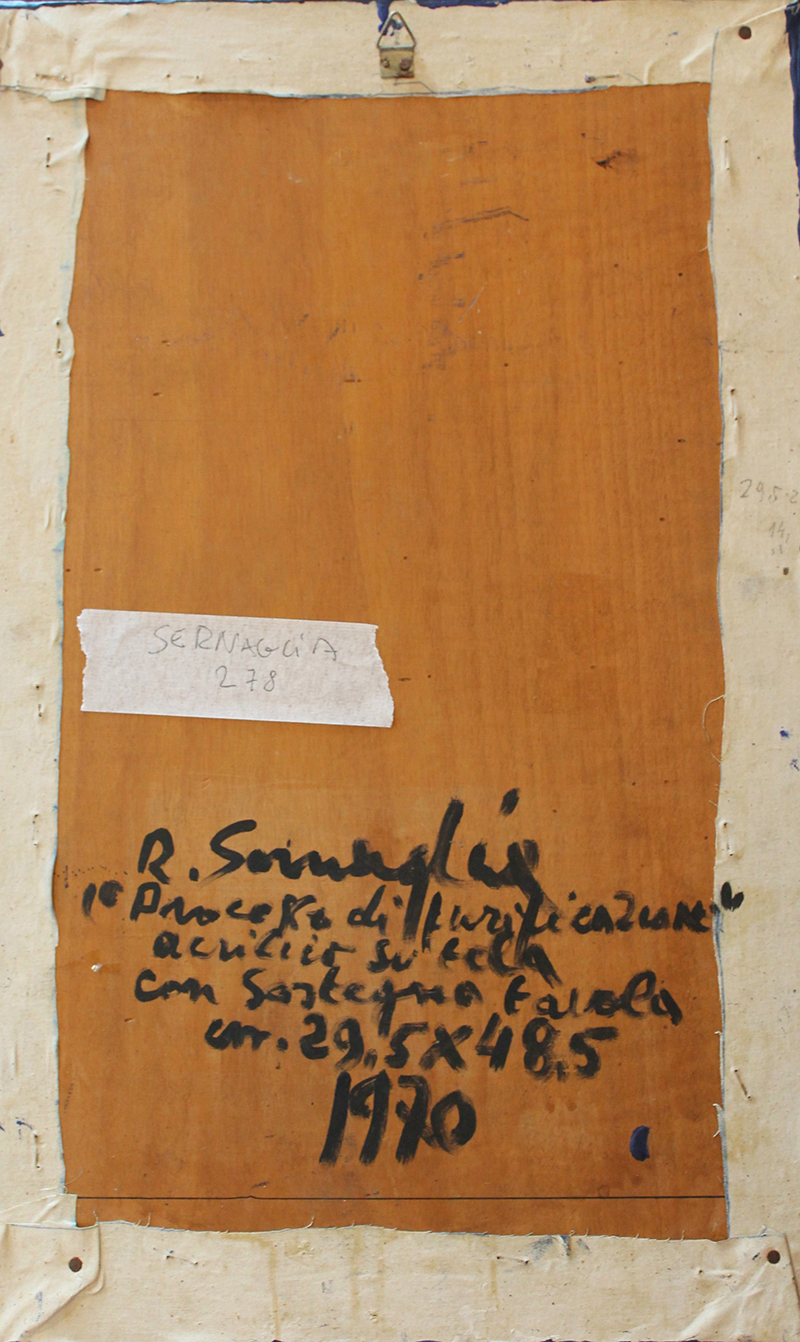 29.5
14,
SERNAGLIA
278
R. Sernaglia
"Processo di purificazione"
acrilico su tela
con sostegno tavola
cm. 29,5 x 48,5
1970